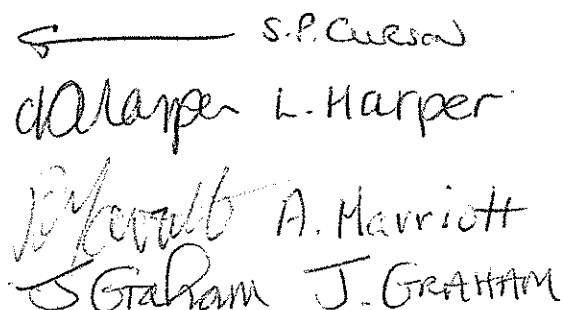 S.P. CURSON
L. Harper
A. Marriott
J Graham J. GRAHAM